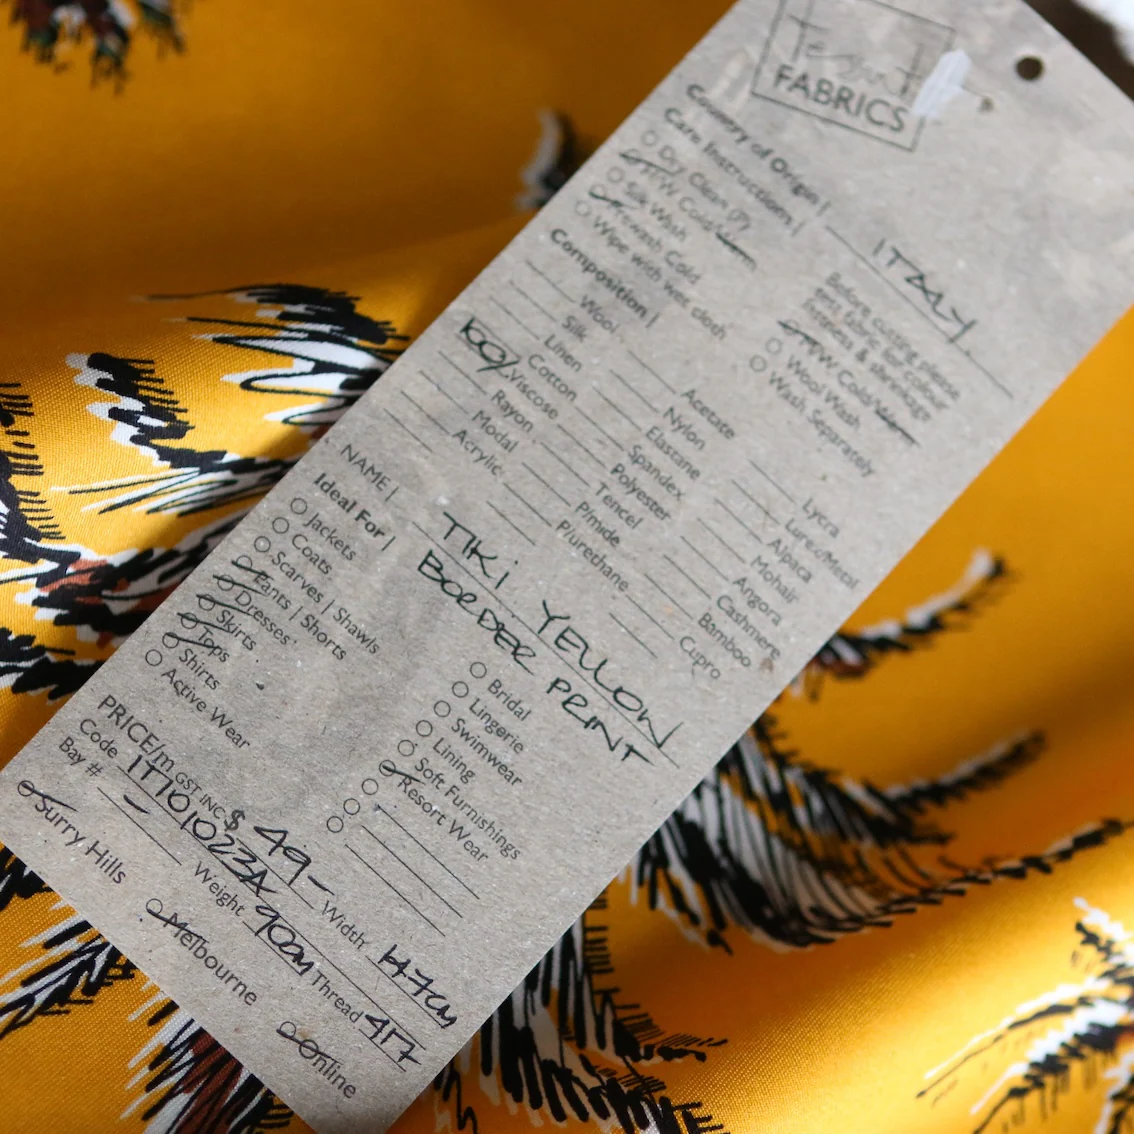 FABRICS
Country of Origin | ITALY.
Care Instructions |
Dry Clean (P)
T/W Cold/Warm
Silk Wash
Prewash Cold
Wipe with wet cloth
Before cutting please
test fabric for colour
fastness & shrinkage
T/W Cold/Warm
Wool Wash
Wash Separately
Composition |
Wool
Silk
Linen
Cotton
100% Viscose
Rayon
Modal
Acrylic
Acetate
Nylon
Elastane
Spandex
Polyester
Tencel
P/mide
P/urethane
Lycra
Lurex/Metal
Alpaca
Mohair
Angora
Cashmere
Bamboo
Cupro
NAME | TIKI YELLOW
BORDER PRINT
Ideal For |
Jackets
Coats
Scarves | Shawls
Pants | Shorts
Dresses
Skirts
Tops
Shirts
Active Wear
Bridal
Lingerie
Swimwear
Lining
Soft Furnishings
Resort Wear
PRICE/m GST INC $ 49- Width 147cm
Code IT101023A Weight 90gm Thread 417
Bay # -
Surry Hills
Melbourne
Online